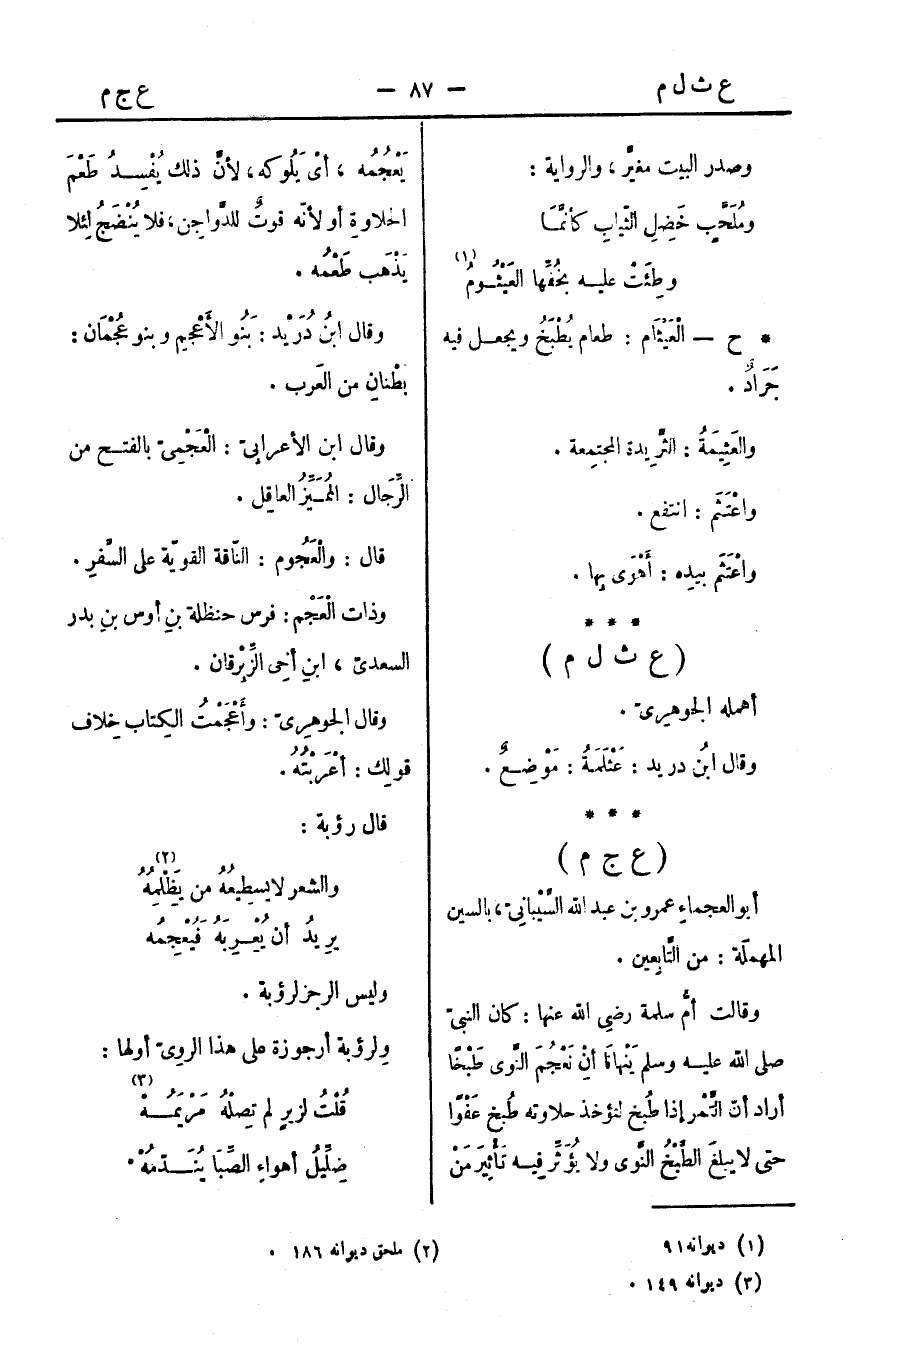 ع ث ل م — ٨٧ — ع ج م
وصدر البيت مغيَّر ، والرواية :
ومُلَحَّبٍ خَضِلِ الثّيابِ كأنَّمَا
وطِئَتْ عليـه بخُفِّها العَيْثُـومُ (١)
* ح — الْعَيْثَام : طعام يُطْبَخُ ويجعـل فيه
جَرَادٌ .
والعَثِيمَةُ : الثَّرِيدة المجتمِعة .
واعْتَثَم : انتفع .
واعْتَثَم بيدِه : أَهْوَى بِها .
* * *
( ع ث ل م )
أهمله الجوهرىّ .
وقال ابنُ دريد : عَثْلَمَةُ : مَوْضِـعٌ .
* * *
( ع ج م )
أبو العجماءِ عمرو بن عبد الله السَّيْبانىّ ، بالسين
المهملَة : من التَّابِعين .
وقالت أمُّ سلمة رضى الله عنها : كان النبىّ
صلى الله عليـه وسلم يَنْهانَا أنْ نَعْجُمَ النَّوى طَبْخًا
أراد أنّ التَّمْر إذا طُبخ لتؤخذ حلاوته طُبخ عَفْوًا
حتى لا يبلغَ الطَّبْخُ النَّوى ولا يُؤَثِّرَ فيـه تَأْثِيرَ مَنْ
يَعْجُمُه ، أىْ يَلُوكه ، لأنَّ ذلك يُفْسِـدُ طَعْم
الحلاوةِ أو لأنّه قوتٌ للدَّواجن ، فلا يُنْضَجُ لئلا
يَذْهَب طَعْمُه .
وقال ابنُ دُرَيْد : بَنُو الأَعْجمِ وبنو عُجْمَان :
بطْنانِ من العَرب .
وقال ابن الأعرابىّ : الْعَجْمىّ بالفتـح من
الرِّجَال : المُمَيِّزُ العاقل .
قال : والْعَجُوم : النّاقة القويّة على السَّفَرِ .
وذات الْعَجْم : فرس حنظلة بنِ أوس بنِ بدر
السعدىّ ، ابنِ أخى الزِّبْرِقان .
وقال الجوهرىّ : وأَعْجَمْتُ الكتاب خلاف
قولك : أعْرَبْتُه .
قال رؤبة :
والشعر لايسطِيعُهُ من يَظْلِمُهُ (٢)
يرِيدُ أن يُعْـرِبَهُ فَيُعْجِمُه
وليس الرجز لرؤبة .
ولرؤبة أرجوزة على هذا الروىّ أولها :
قُلْتُ لزيرٍ لم تصِلْهُ مَرْيَمُـــهْ (٣)
ضِلِّيلُ أهواءِ الصِّبَا يُنَـدِّمُهْ .
(١) ديوانه ٩١ (٢) ملحق ديوانه ١٨٦ .
(٣) ديوانه ١٤٩ .